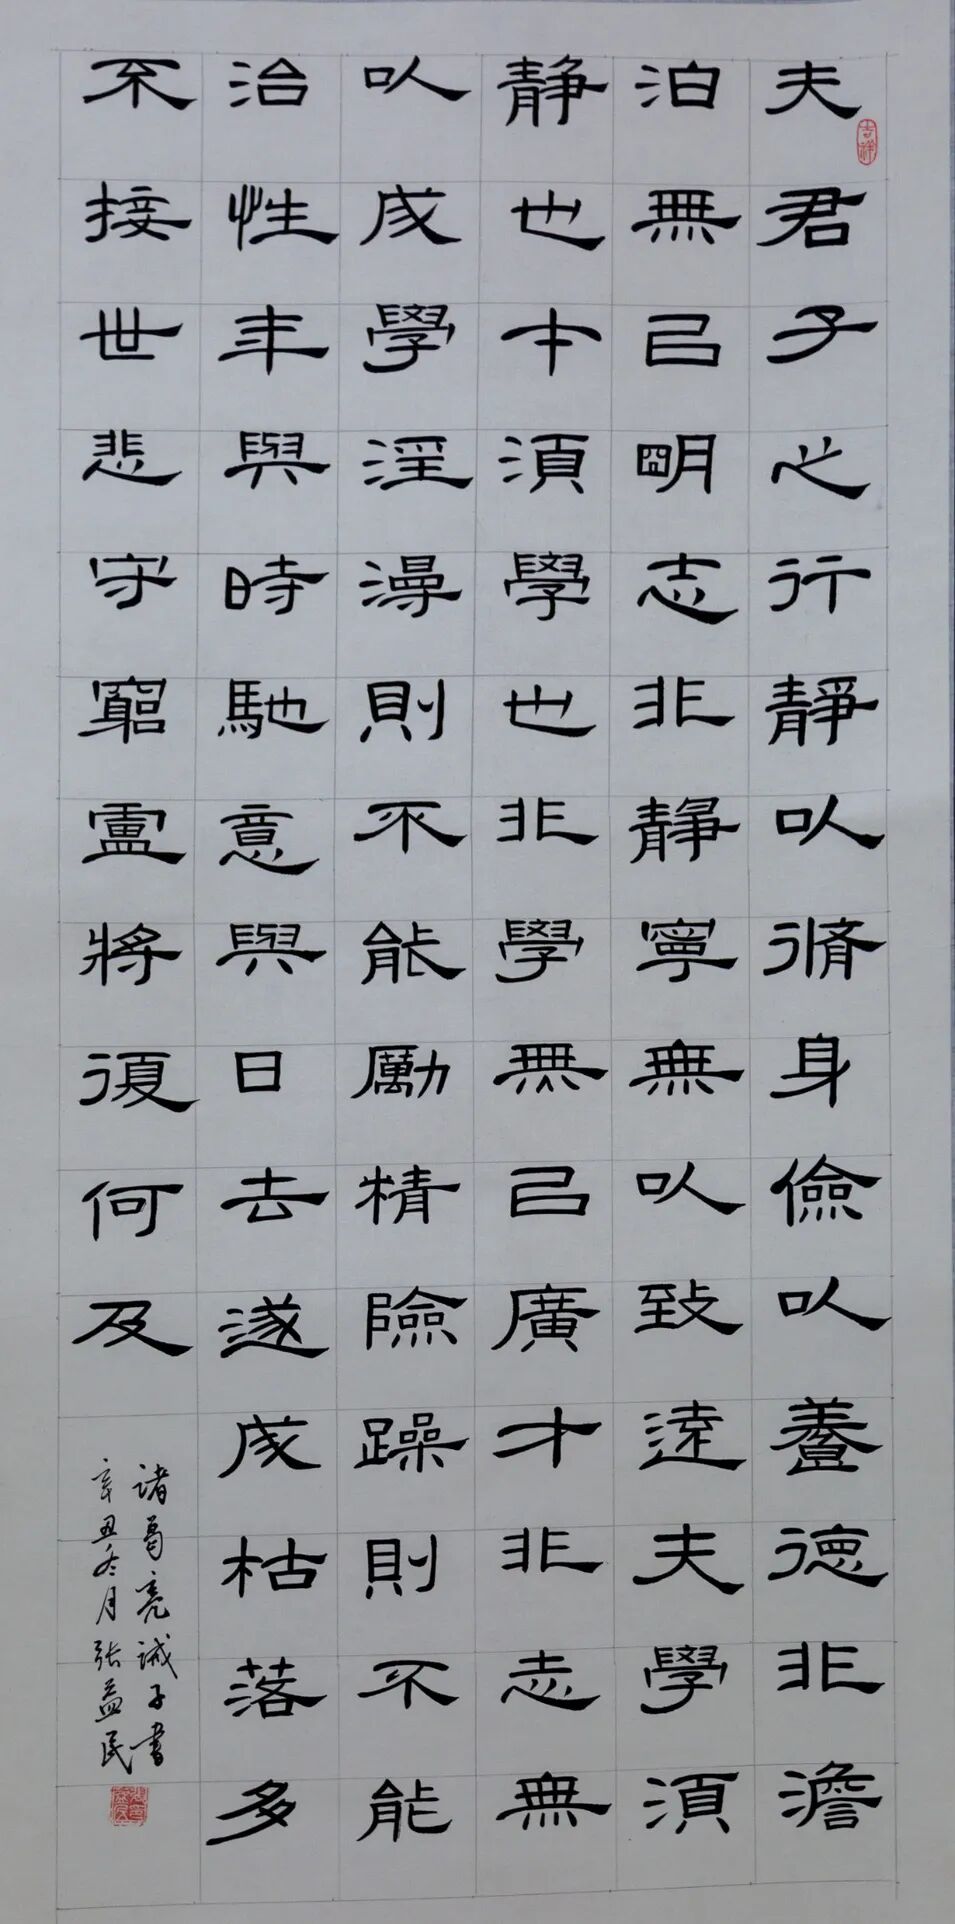 吉祥
夫君子之行靜以脩身儉以養德非澹
泊無㠯朙志非靜寧無以致遠夫學須
静也本須學也非學無㠯廣才非志無
以成學淫漫則不能勵精險躁則不能
治性年與時馳意與日去遂成枯落多
不接世悲守窮廬將復何及
诸葛亮诫子書
辛丑冬月张益民